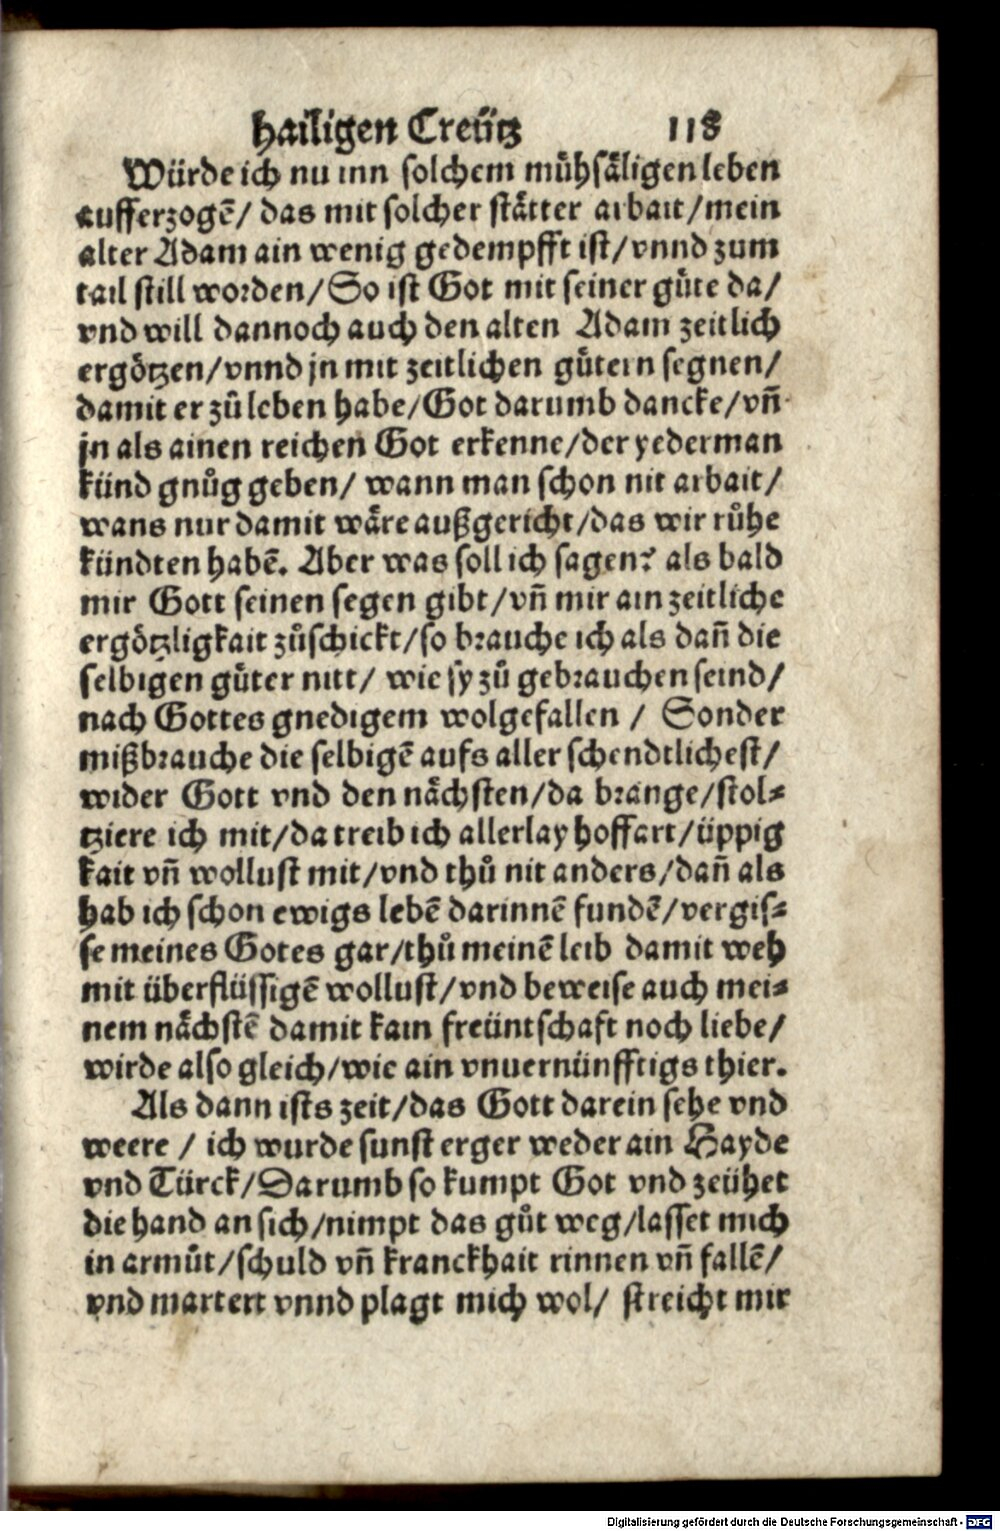 hailigen Creütz 118
Würde ich nu inn solchem mühsäligen leben
aufferzogē/ das mit solcher stätter arbait/mein
alter Adam ain wenig gedempfft ist/vnnd zum
tail still worden/So ist Got mit seiner güte da/
vnd will dannoch auch den alten Adam zeitlich
ergötzen/vnnd jn mit zeitlichen gütern segnen/
damit er zů leben habe/Got darumb dancke/vñ
jn als ainen reichen Got erkenne/der yederman
künd gnůg geben/ wann man schon nit arbait/
wans nur damit wäre außgericht/das wir růhe
kündten habē. Aber was soll ich sagen? als bald
mir Gott seinen segen gibt/vñ mir ain zeitliche
ergötzligkait zůschickt/so brauche ich als dañ die
selbigen güter nitt/ wie sy zů gebrauchen seind/
nach Gottes gnedigem wolgefallen / Sonder
mißbrauche die selbigē aufs aller schendtlichest/
wider Gott vnd den nächsten/da brange/stol⸗
tziere ich mit/da treib ich allerlay hoffart/üppig
kait vñ wollust mit/vnd thů nit anders/dañ als
hab ich schon ewigs lebē darinnē fundē/vergis⸗
se meines Gotes gar/thů meinē leib damit weh
mit überflüssigē wollust/vnd beweise auch mei⸗
nem nächstē damit kain freüntschaft noch liebe/
wirde also gleich/wie ain vnuernünfftigs thier.
Als dann ists zeit/das Gott darein sehe vnd
weere / ich wurde sunst erger weder ain Hayde
vnd Türck/Darumb so kumpt Got vnd zeühet
die hand an sich/nimpt das gůt weg/lasset mich
in armůt/schuld vñ kranckhait rinnen vñ fallē/
vnd martert vnnd plagt mich wol/ streicht mir
Digitalisierung gefördert durch die Deutsche Forschungsgemeinschaft - DFG